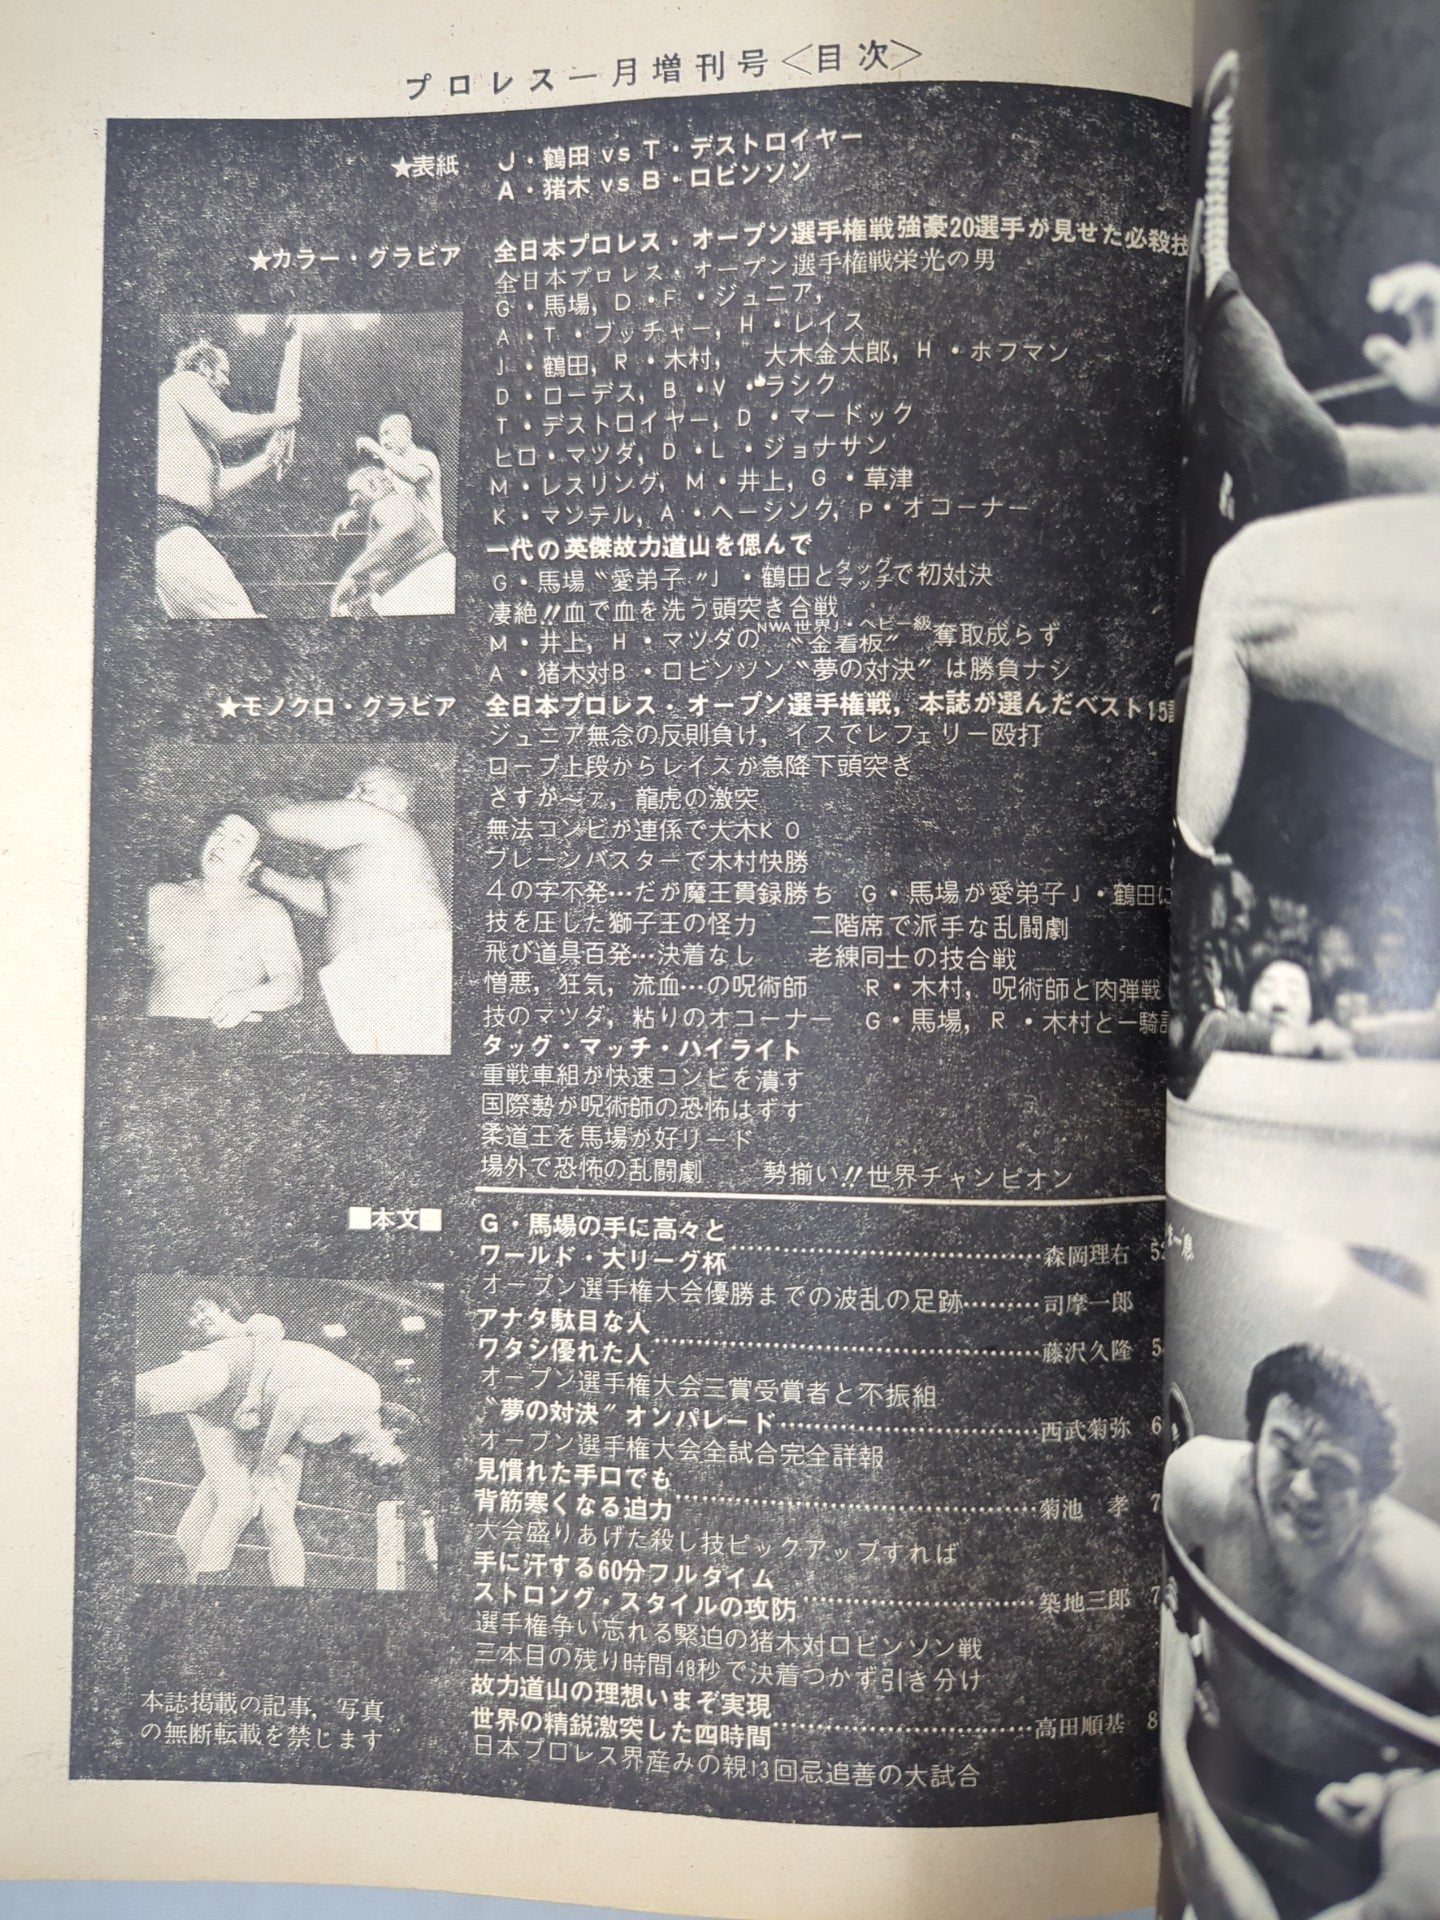 プロレス一月増刊号〈目次〉
★表紙 J・鶴田 vs T・デストロイヤー
A・猪木 vs B・ロビンソン
★カラー・グラビア 全日本プロレス・オープン選手権戦強豪20選手が見せた必殺技
全日本プロレス・オープン選手権戦栄光の男
G・馬場, D・F・ジュニア,
A・T・ブッチャー, H・レイス
J・鶴田, R・木村, 大木金太郎, H・ホフマン
D・ローデス, B・V・ラシク
T・デストロイヤー, D・マードック
ヒロ・マツダ, D・L・ジョナサン
M・レスリング, M・井上, G・草津
K・マンテル, A・ヘーシンク, P・オコーナー
一代の英傑故力道山を偲んで
G・馬場〝愛弟子〟J・鶴田とタッグマッチで初対決
凄絶!!血で血を洗う頭突き合戦
M・井上, H・マツダのNWA世界J・ヘビー級〝金看板〟奪取成らず
A・猪木対B・ロビンソン〝夢の対決〟は勝負ナシ
★モノクロ・グラビア 全日本プロレス・オープン選手権戦, 本誌が選んだベスト15
ジュニア無念の反則負け, イスでレフェリー殴打
ロープ上段からレイスが急降下頭突き
さすが〜ァ, 龍虎の激突
無法コンビが連係で大木KO
ブレーンバスターで木村快勝
4の字不発…だが魔王貫録勝ち G・馬場が愛弟子J・鶴田に
技を圧した獅子王の怪力 二階席で派手な乱闘劇
飛び道具百発…決着なし 老練同士の技合戦
憎悪, 狂気, 流血…の呪術師 R・木村, 呪術師と肉弾戦
技のマツダ, 粘りのオコーナー G・馬場, R・木村と一騎
タッグ・マッチ・ハイライト
重戦車組が快速コンビを潰す
国際勢が呪術師の恐怖はずす
柔道王を馬場が好リード
場外で恐怖の乱闘劇 勢揃い!!世界チャンピオン
■本文■ G・馬場の手に高々と
ワールド・大リーグ杯………森岡理右 5
オープン選手権大会優勝までの波乱の足跡………司摩一郎
アナタ駄目な人
ワタシ優れた人………藤沢久隆 5
オープン選手権大会三賞受賞者と不振組
〝夢の対決〟オンパレード………西武菊弥 6
オープン選手権大会全試合完全詳報
見慣れた手口でも
背筋寒くなる迫力………菊池 孝 7
大会盛りあげた殺し技ピックアップすれば
手に汗する60分フルタイム
ストロング・スタイルの攻防………築地三郎 7
選手権争い忘れる緊迫の猪木対ロビンソン戦
三本目の残り時間48秒で決着つかず引き分け
故力道山の理想いまぞ実現
世界の精鋭激突した四時間………高田順基 8
日本プロレス界産みの親13回忌追善の大試合
本誌掲載の記事, 写真
の無断転載を禁じます